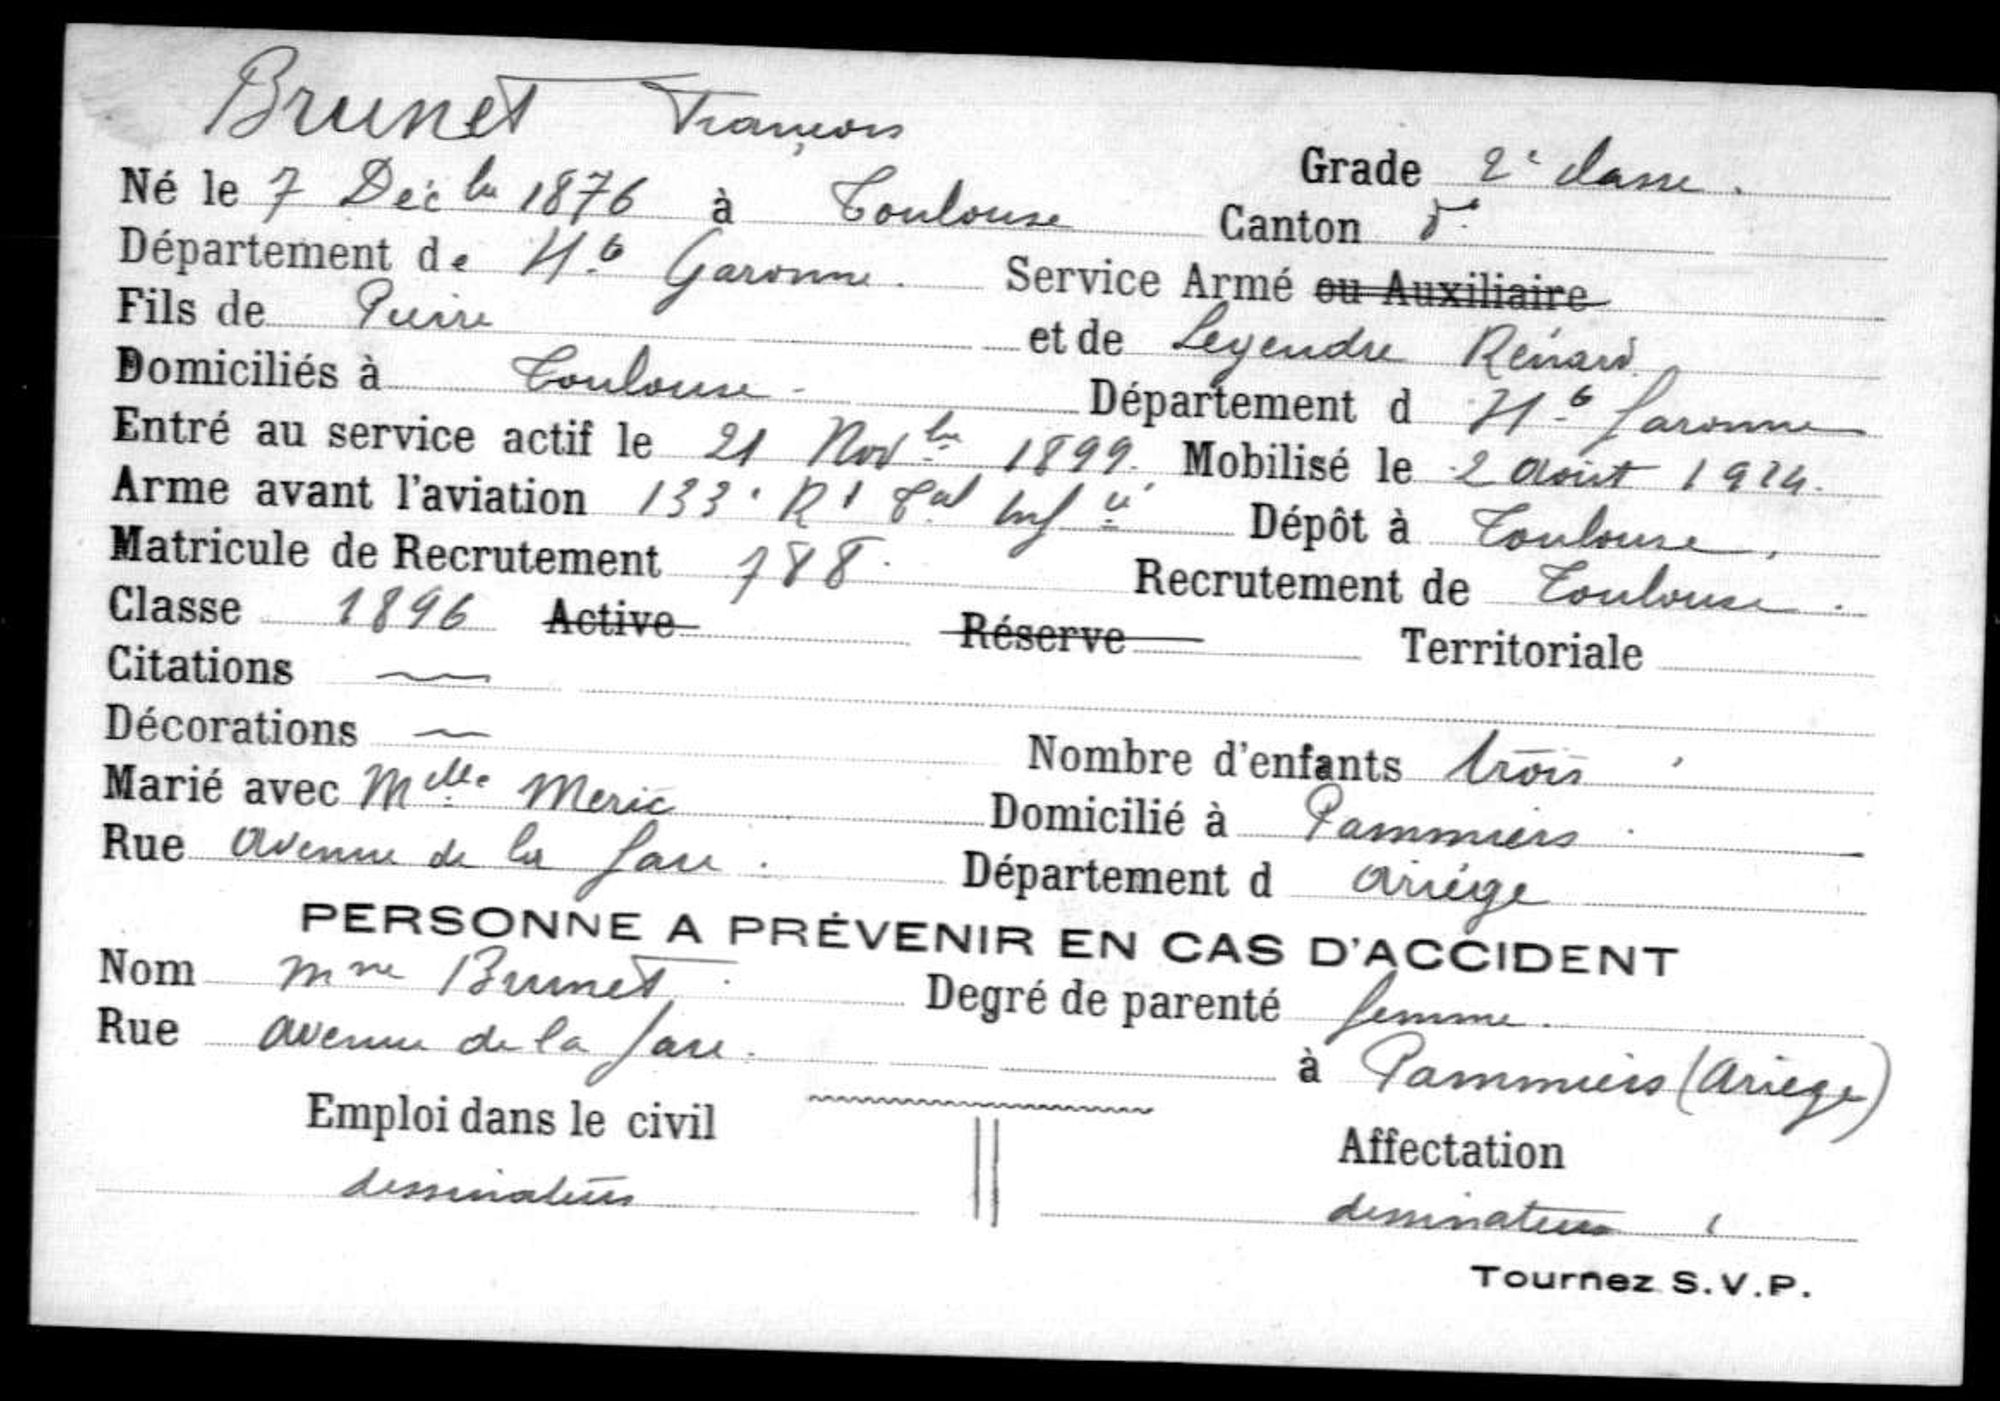 Brunet François
Grade 2e classe.
Né le 7 Décbre 1876 à Toulouse Canton do
Département de Hte Garonne. Service Armé ou Auxiliaire
Fils de Pierre et de Legendre Rénard
Domiciliés à Toulouse - Département d Hte Garonne
Entré au service actif le 21 Novbre 1899. Mobilisé le 2 Aout 1914.
Arme avant l'aviation 133e Rt tal Infie Dépôt à Toulouse.
Matricule de Recrutement 788. Recrutement de Toulouse.
Classe 1896 Active Réserve Territoriale
Citations —
Décorations — Nombre d'enfants trois
Marié avec Melle Meric Domicilié à Pammiers.
Rue Avenue de la Gare. Département d Ariège
PERSONNE A PRÉVENIR EN CAS D'ACCIDENT
Nom Mme Brunet. Degré de parenté femme.
Rue Avenue de la Gare. à Pammiers (Ariege)
Emploi dans le civil Affectation
dessinateur dessinateur
Tournez S.V.P.